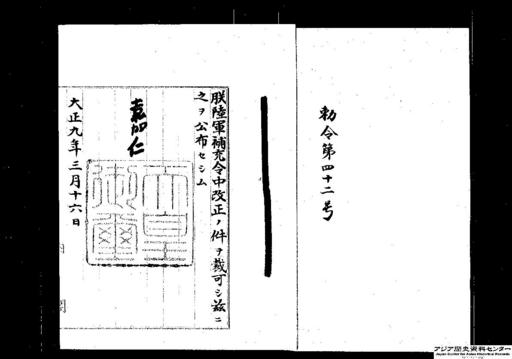 勅令第四十二号
朕陸軍補充令中改正ノ件ヲ裁可シ茲ニ
之ヲ公布セシム
嘉仁
天皇御璽
大正九年三月十六日
アジア歴史資料センター
Japan Center for Asian Historical Records